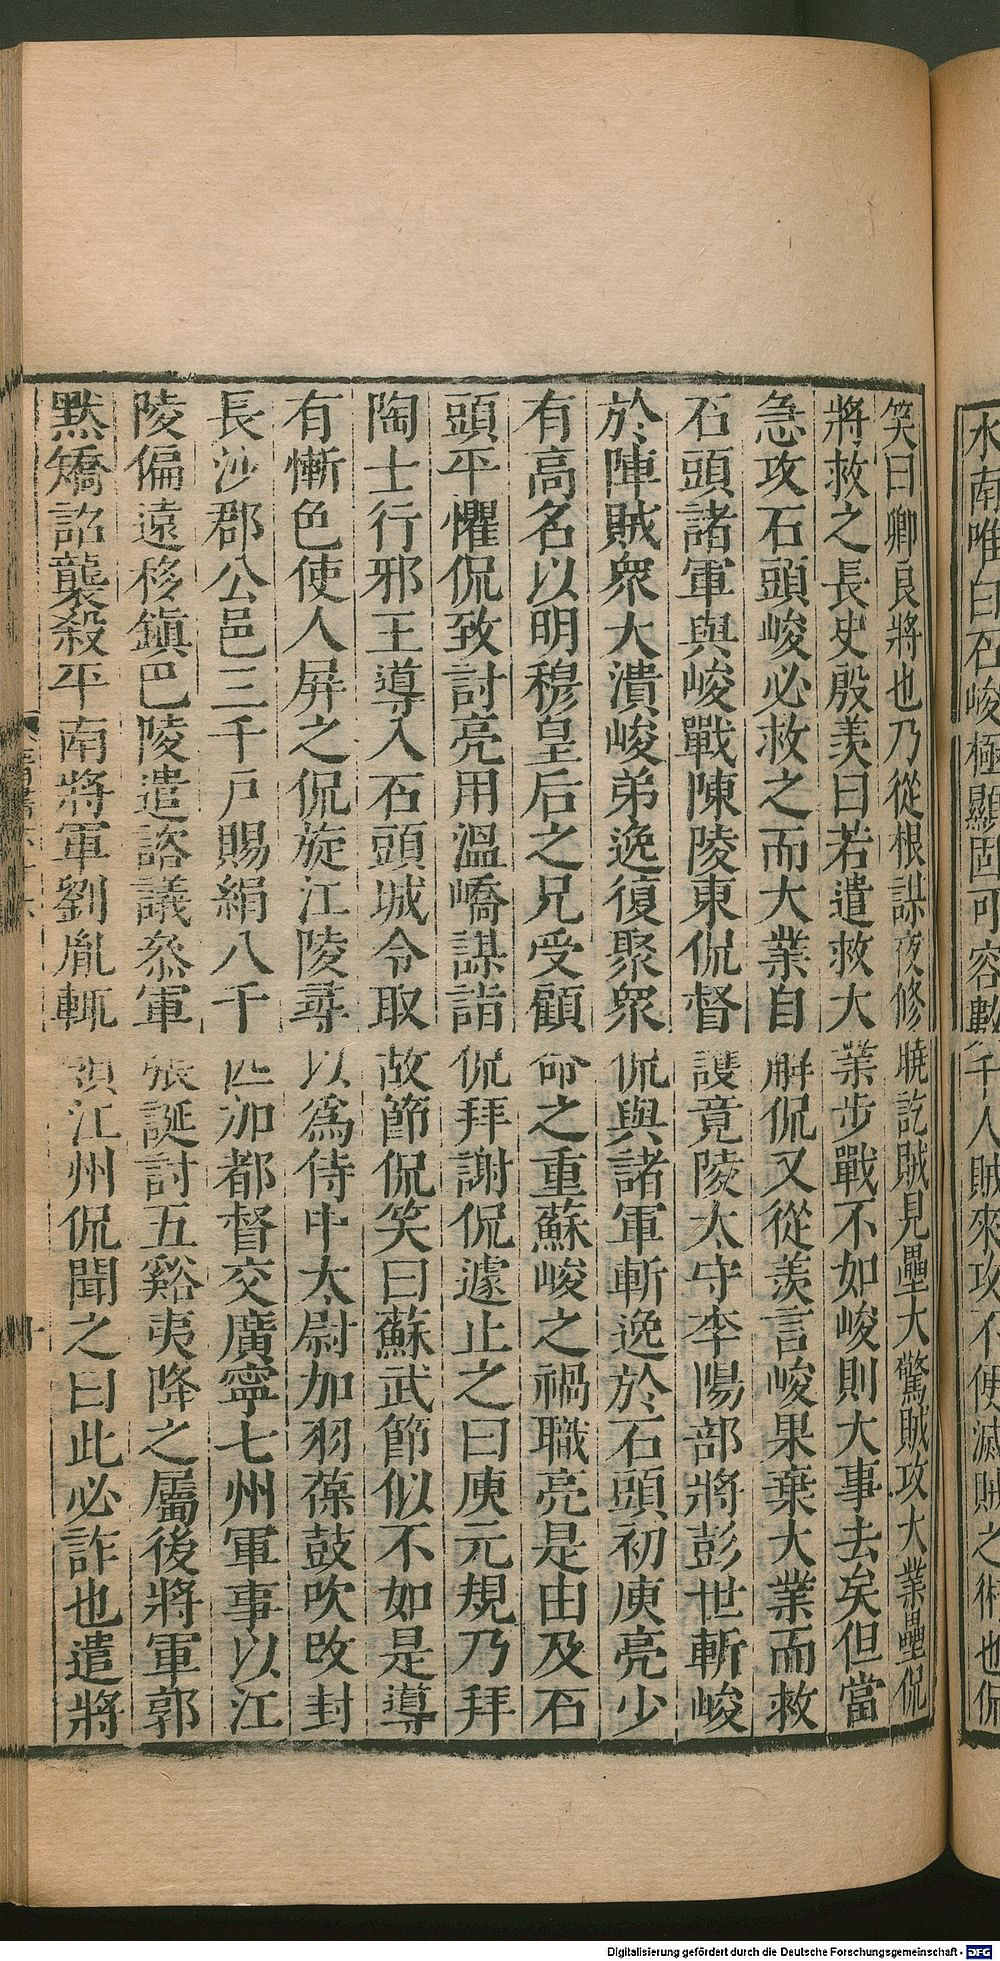 水南唯白石峻極顯固可容數千人賊來攻不便滅賊之術也侃
笑曰卿良將也乃從根謀夜修曉訖賊見壘大驚賊攻大業壘侃
將救之長史殷羨曰若遣救大業步戰不如峻則大事去矣但當
急攻石頭峻必救之而大業自解侃又從羨言峻果棄大業而救
石頭諸軍與峻戰陳陵東侃督護竟陵太守李陽部將彭世斬峻
於陣賊衆大潰峻弟逸復聚衆侃與諸軍斬逸於石頭初庾亮少
有高名以明穆皇后之兄受顧命之重蘇峻之禍職亮是由及石
頭平懼侃致討亮用溫嶠謀詣侃拜謝侃遽止之曰庾元規乃拜
陶士行邪王導入石頭城令取故節侃笑曰蘇武節似不如是導
有慚色使人屏之侃旋江陵尋以為侍中太尉加羽葆鼓吹改封
長沙郡公邑三千戶賜絹八千匹加都督交廣寧七州軍事以江
陵偏遠移鎮巴陵遣諮議叅軍張誕討五谿夷降之屬後將軍郭
默矯詔襲殺平南將軍劉胤輒領江州侃聞之曰此必詐也遣將
Digitalisierung gefördert durch die Deutsche Forschungsgemeinschaft - DFG